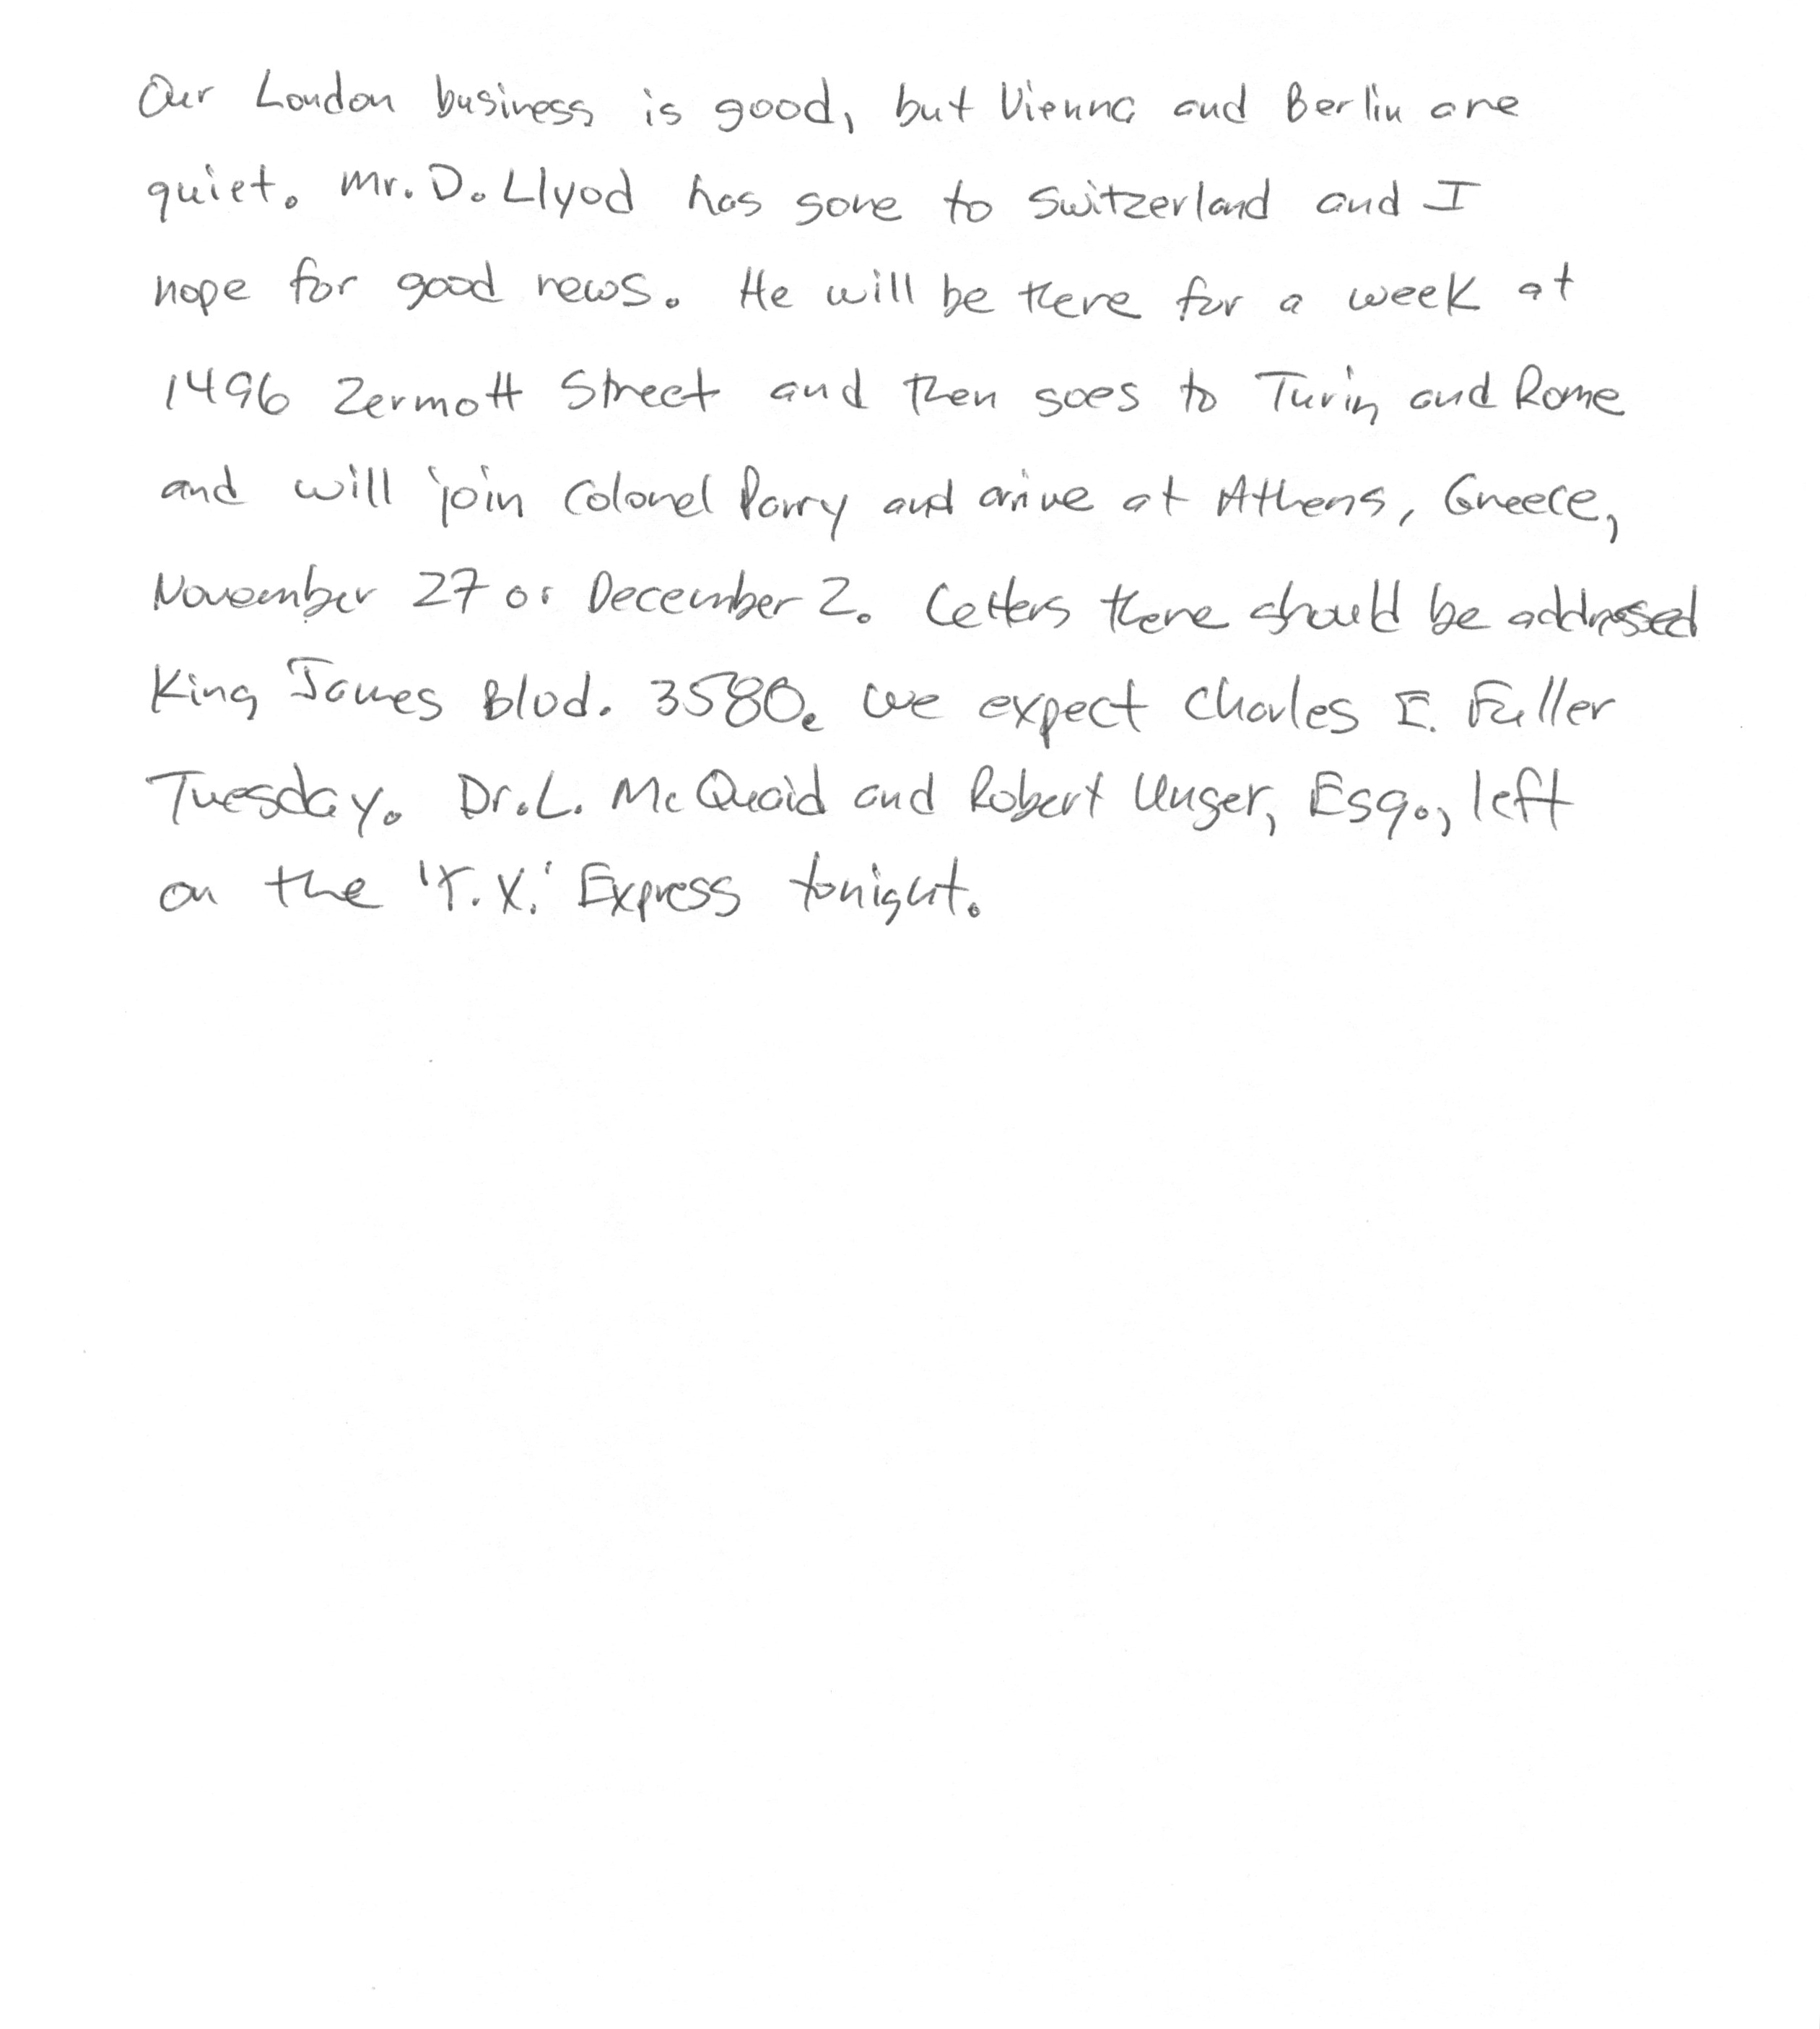 Our London business is good, but Vienna and Berlin are
quiet. Mr. D. Llyod has gone to Switzerland and I
hope for good news. He will be there for a week at
1496 Zermott Street and then goes to Turin and Rome
and will join Colonel Parry and arrive at Athens, Greece,
November 27 or December 2. Letters there should be addressed
King James Blvd. 3580. We expect Charles E. Fuller
Tuesday. Dr. L. McQuaid and Robert Unger, Esq., left
on the 'Y.X.' Express tonight.